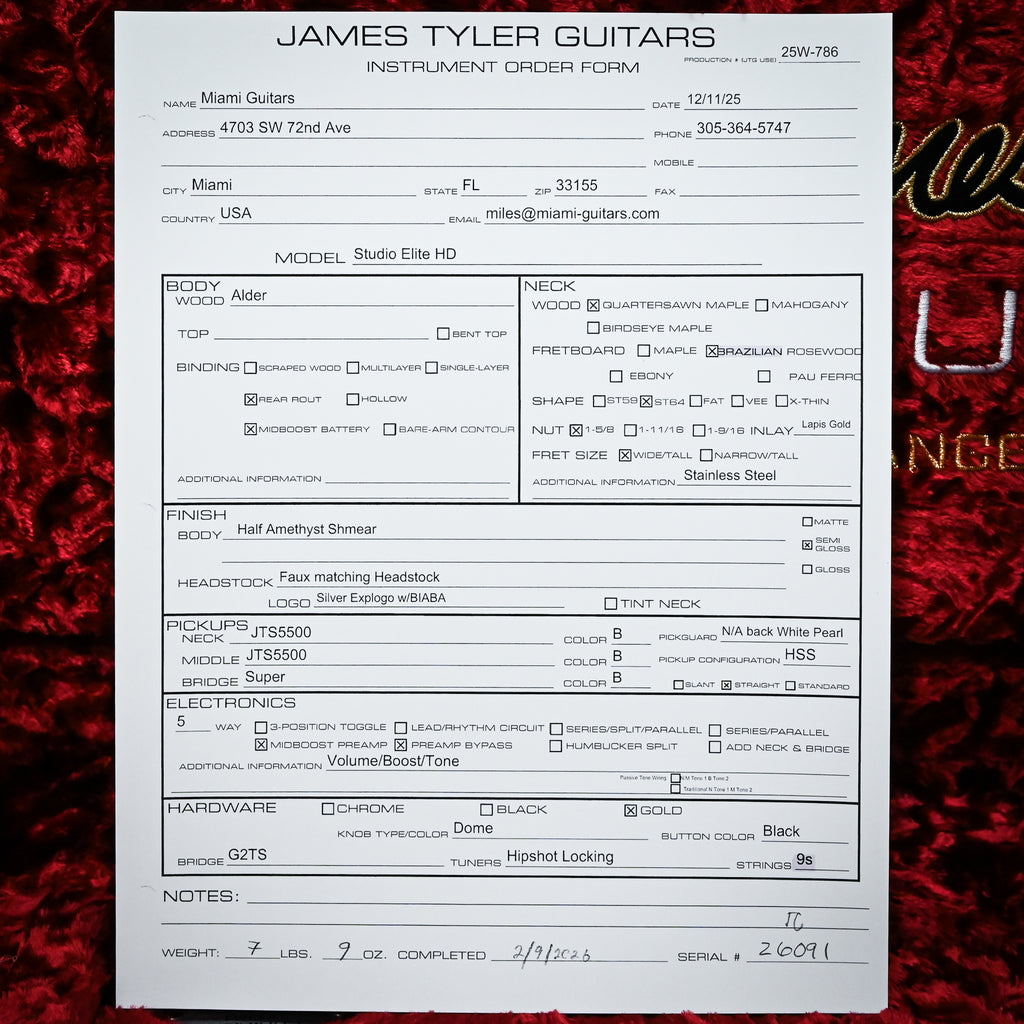 JAMES TYLER GUITARS
INSTRUMENT ORDER FORM
PRODUCTION # (JTG USE) 25W-786
NAME Miami Guitars DATE 12/11/25
ADDRESS 4703 SW 72nd Ave PHONE 305-364-5747
MOBILE
CITY Miami STATE FL ZIP 33155 FAX
COUNTRY USA EMAIL miles@miami-guitars.com
MODEL Studio Elite HD
BODY
WOOD Alder
TOP ☐ BENT TOP
BINDING ☐ SCRAPED WOOD ☐ MULTILAYER ☐ SINGLE-LAYER
☒ REAR ROUT ☐ HOLLOW
☒ MIDBOOST BATTERY ☐ BARE-ARM CONTOUR
ADDITIONAL INFORMATION
NECK
WOOD ☒ QUARTERSAWN MAPLE ☐ MAHOGANY
☐ BIRDSEYE MAPLE
FRETBOARD ☐ MAPLE ☒ BRAZILIAN ROSEWOOD
☐ EBONY ☐ PAU FERRO
SHAPE ☐ ST59 ☒ ST64 ☐ FAT ☐ VEE ☐ X-THIN
NUT ☒ 1-5/8 ☐ 1-11/16 ☐ 1-9/16 INLAY Lapis Gold
FRET SIZE ☒ WIDE/TALL ☐ NARROW/TALL
ADDITIONAL INFORMATION Stainless Steel
FINISH
BODY Half Amethyst Shmear
☐ MATTE
☒ SEMI GLOSS
☐ GLOSS
HEADSTOCK Faux matching Headstock
LOGO Silver Explogo w/BIABA ☐ TINT NECK
PICKUPS
NECK JTS5500 COLOR B PICKGUARD N/A back White Pearl
MIDDLE JTS5500 COLOR B PICKUP CONFIGURATION HSS
BRIDGE Super COLOR B ☐ SLANT ☒ STRAIGHT ☐ STANDARD
ELECTRONICS
5 WAY ☐ 3-POSITION TOGGLE ☐ LEAD/RHYTHM CIRCUIT ☐ SERIES/SPLIT/PARALLEL ☐ SERIES/PARALLEL
☒ MIDBOOST PREAMP ☒ PREAMP BYPASS ☐ HUMBUCKER SPLIT ☐ ADD NECK & BRIDGE
ADDITIONAL INFORMATION Volume/Boost/Tone
Passive Tone Wiring ☐ N M Tone 1 B Tone 2
☐ Traditional N Tone 1 M Tone 2
HARDWARE ☐ CHROME ☐ BLACK ☒ GOLD
KNOB TYPE/COLOR Dome BUTTON COLOR Black
BRIDGE G2TS TUNERS Hipshot Locking STRINGS 9s
NOTES:
WEIGHT: 7 LBS. 9 OZ. COMPLETED 2/9/2026 SERIAL # 26091